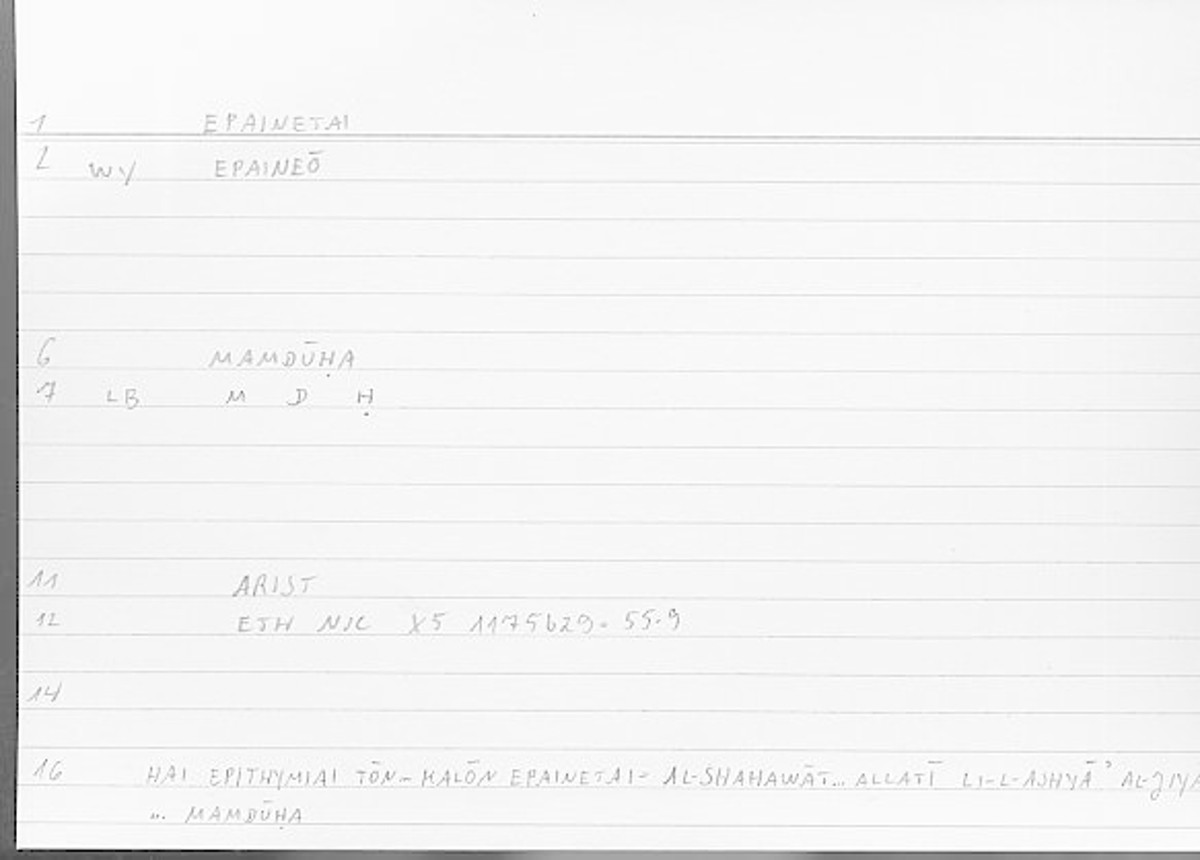 1 EPAINETAI
2 WY EPAINEŌ
6 MAMDŪḤA
7 LB M D Ḥ
11 ARIST
12 ETH NIC X5 1175b29. 55.9
14
16 HAI EPITHYMIAI TŌN- KALŌN EPAINETAI- AL-SHAHAWĀT... ALLATĪ LI-L-ASHYĀʾ AL-JIYA
... MAMDŪḤA